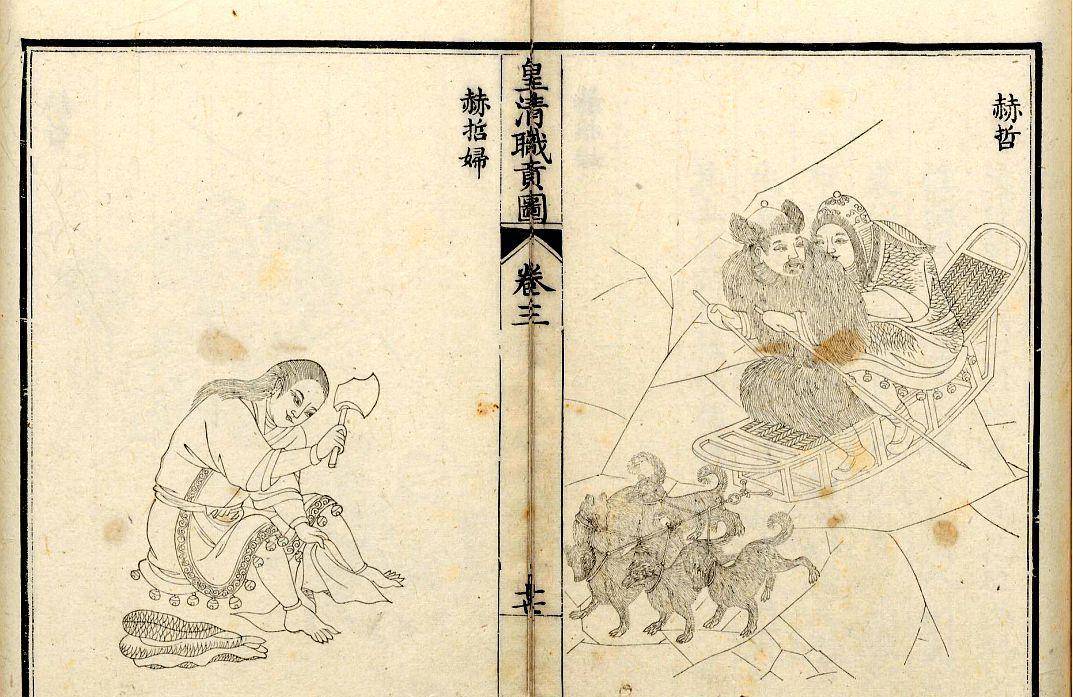 赫哲
皇清職貢圖
卷三
赫哲婦